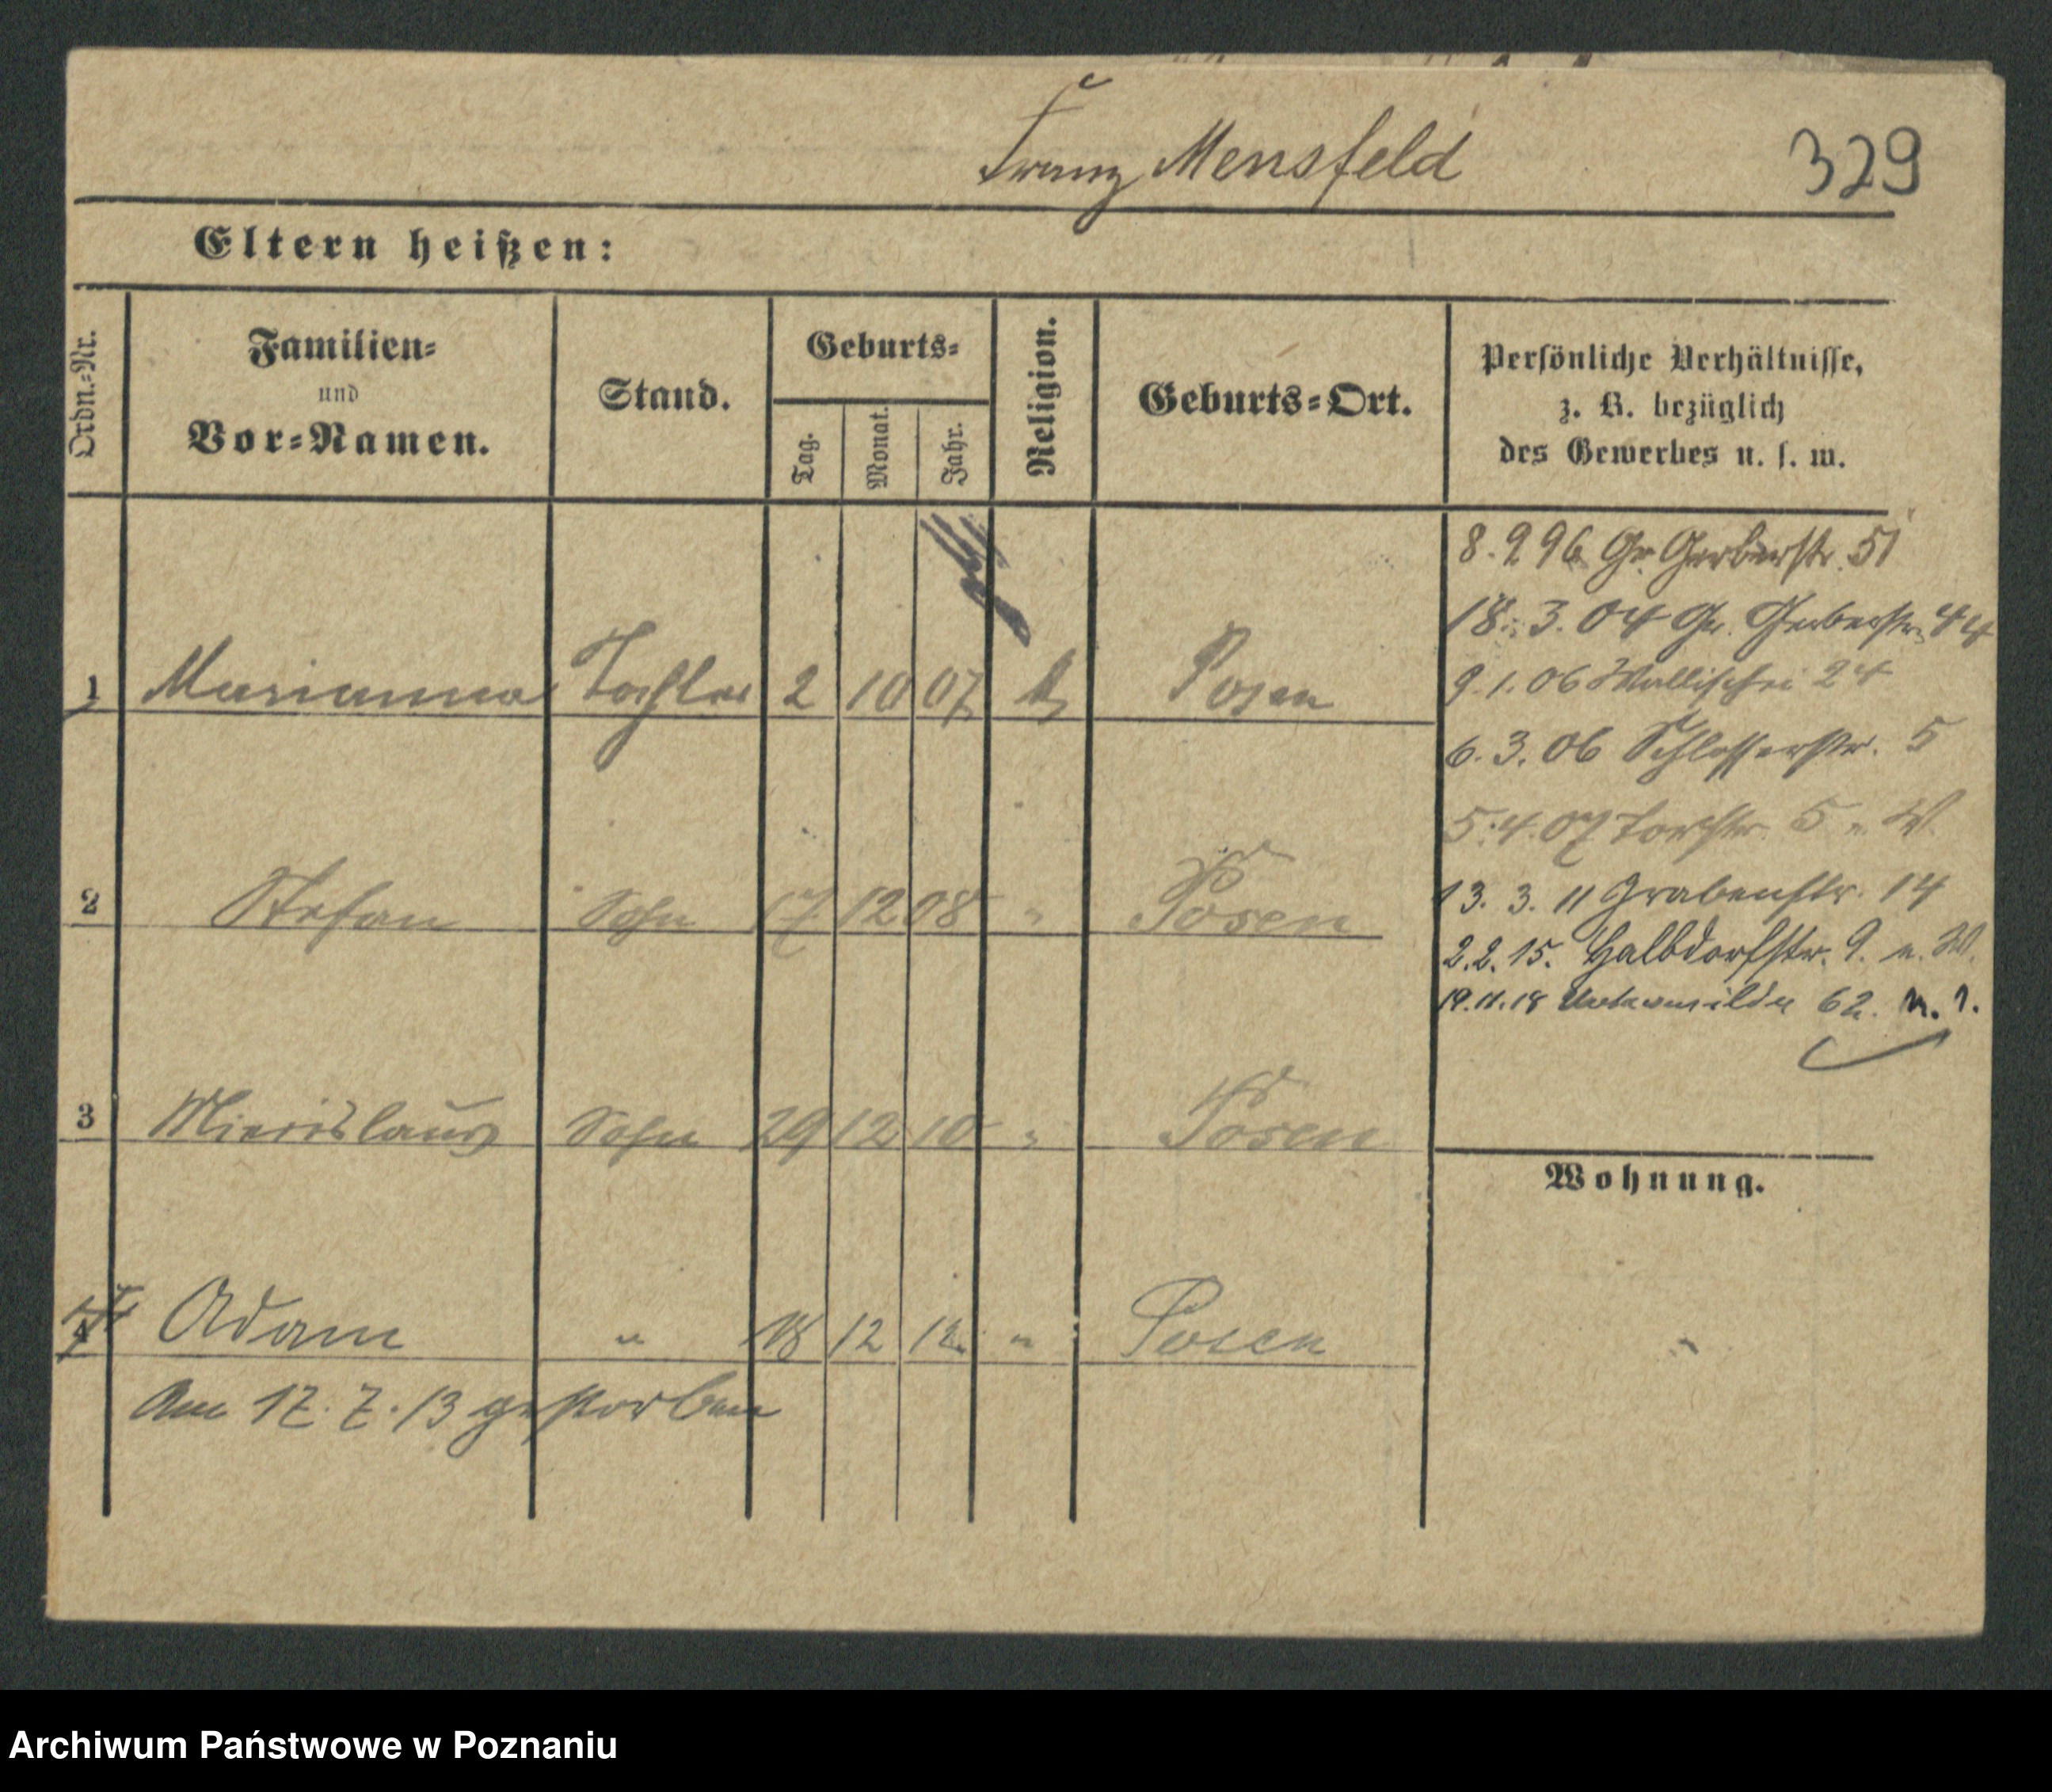 Franz Mensfeld
329
Eltern heißen:
Ordn.=Nr.
Familien=
und
Vor=Namen.
Stand.
Geburts=
Tag.
Monat.
Jahr.
Religion.
Geburts=Ort.
Persönliche Verhältnisse,
z. B. bezüglich
des Gewerbes u. s. w.
8. 9 96 Gr. Gerberstr. 51
18. 3. 04 Gr. Gerberstr. 44
9. 1. 06 Wallischei 24
6. 3. 06 Schlosserstr. 5
5. 4. 07 Torstr. 5 n. W.
13. 3. 11 Grabenstr. 14
2. 2. 15. Halbdorfstr. 9. n. W.
19. 11. 18 Unterwilda 62. n. 1.
1 Marianna Tochter 2 10 07 k Posen
2 Stefan Sohn 17 12 08 " Posen
3 Sohn 29 12 10 " Posen
Wohnung.
4 Adam " 18 12 12 " Posen
Am 17. 7. 13 gestorben
Archiwum Państwowe w Poznaniu